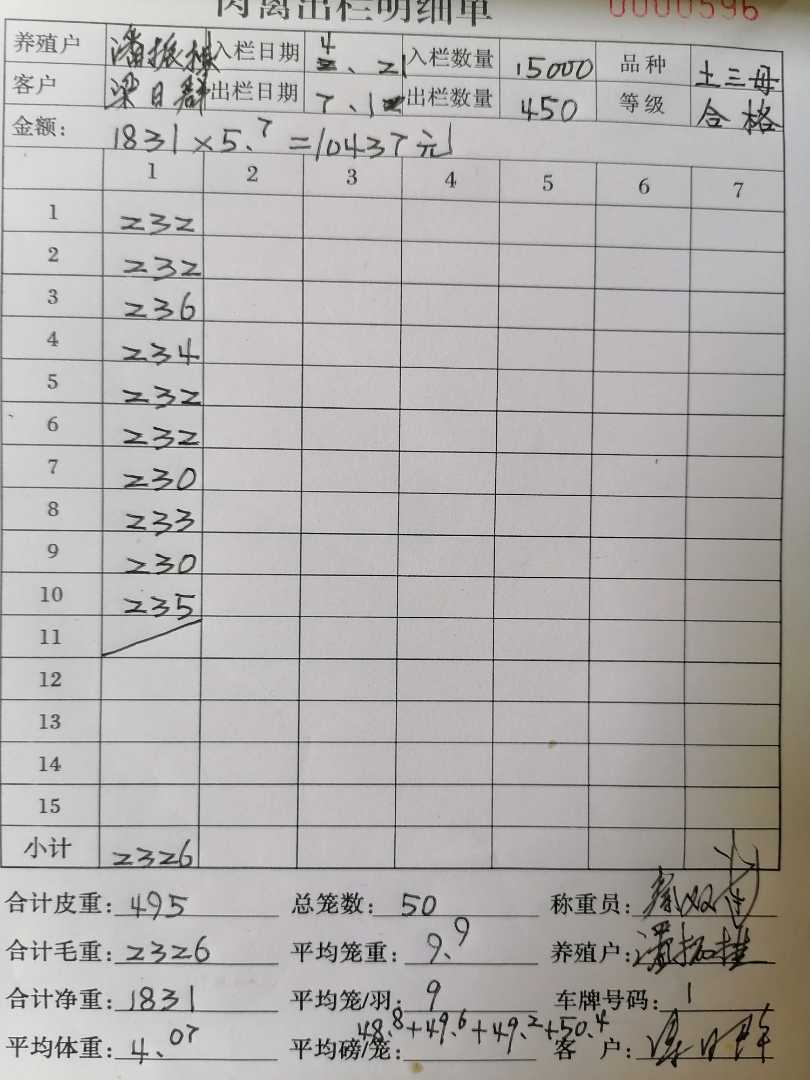 肉禽出栏明细单 0000596
养殖户 潘振桂 入栏日期 4、21 入栏数量 15000 品种 土三母
客户 梁日群 出栏日期 7、1 出栏数量 450 等级 合格
金额: 1831×5.7=10437元
1 2 3 4 5 6 7
1 232
2 232
3 236
4 234
5 232
6 232
7 230
8 233
9 230
10 235
11
12
13
14
15
小计 2326
合计皮重: 495 总笼数: 50 称重员:
合计毛重: 2326 平均笼重: 9.9 养殖户: 潘振桂
合计净重: 1831 平均笼/羽: 9 车牌号码: 1
平均体重: 4.07 平均磅/笼: 48.8+49.6+49.2+50.4 客户: 梁日群